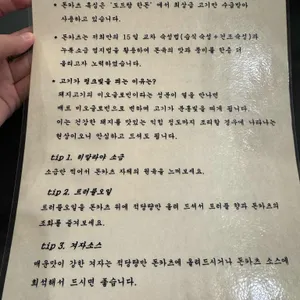 * 돈카츠 육심은 '도드람 한돈' 에서 최상급 고기만 수급받아
사용하고 있습니다.
* 돈카츠는 저희만의 15일 교차 숙성법(습식숙성+건조숙성)과
누룩소금 염지법을 활용하여 돈육의 맛과 풍미를 한층 더
올리고자 노력하였습니다.
* 고기가 핑크빛을 띄는 이유는?
돼지고기의 미오글로빈이라는 성분이 열을 만나면
메트 미오글로빈으로 변하며 고기가 선홍빛을 띄게 됩니다.
이는 건강한 돼지를 맛있는 익힘 정도까지 조리할 경우에 나타나는
현상이오니 안심하고 드셔도 됩니다.
tip 1. 히말라야 소금
소금만 찍어서 돈카츠 자체의 원육을 느껴보세요.
tip 2. 트러플오일
트러플오일을 돈카츠 위에 적당량만 올려 드셔서 트러플 향과 돈카츠의
조화를 즐겨보세요.
tip 3. 겨자소스
매운맛이 강한 겨자는 적당량만 돈카츠에 올려드시거나 돈카츠 소스에
희석해서 드시면 좋습니다.